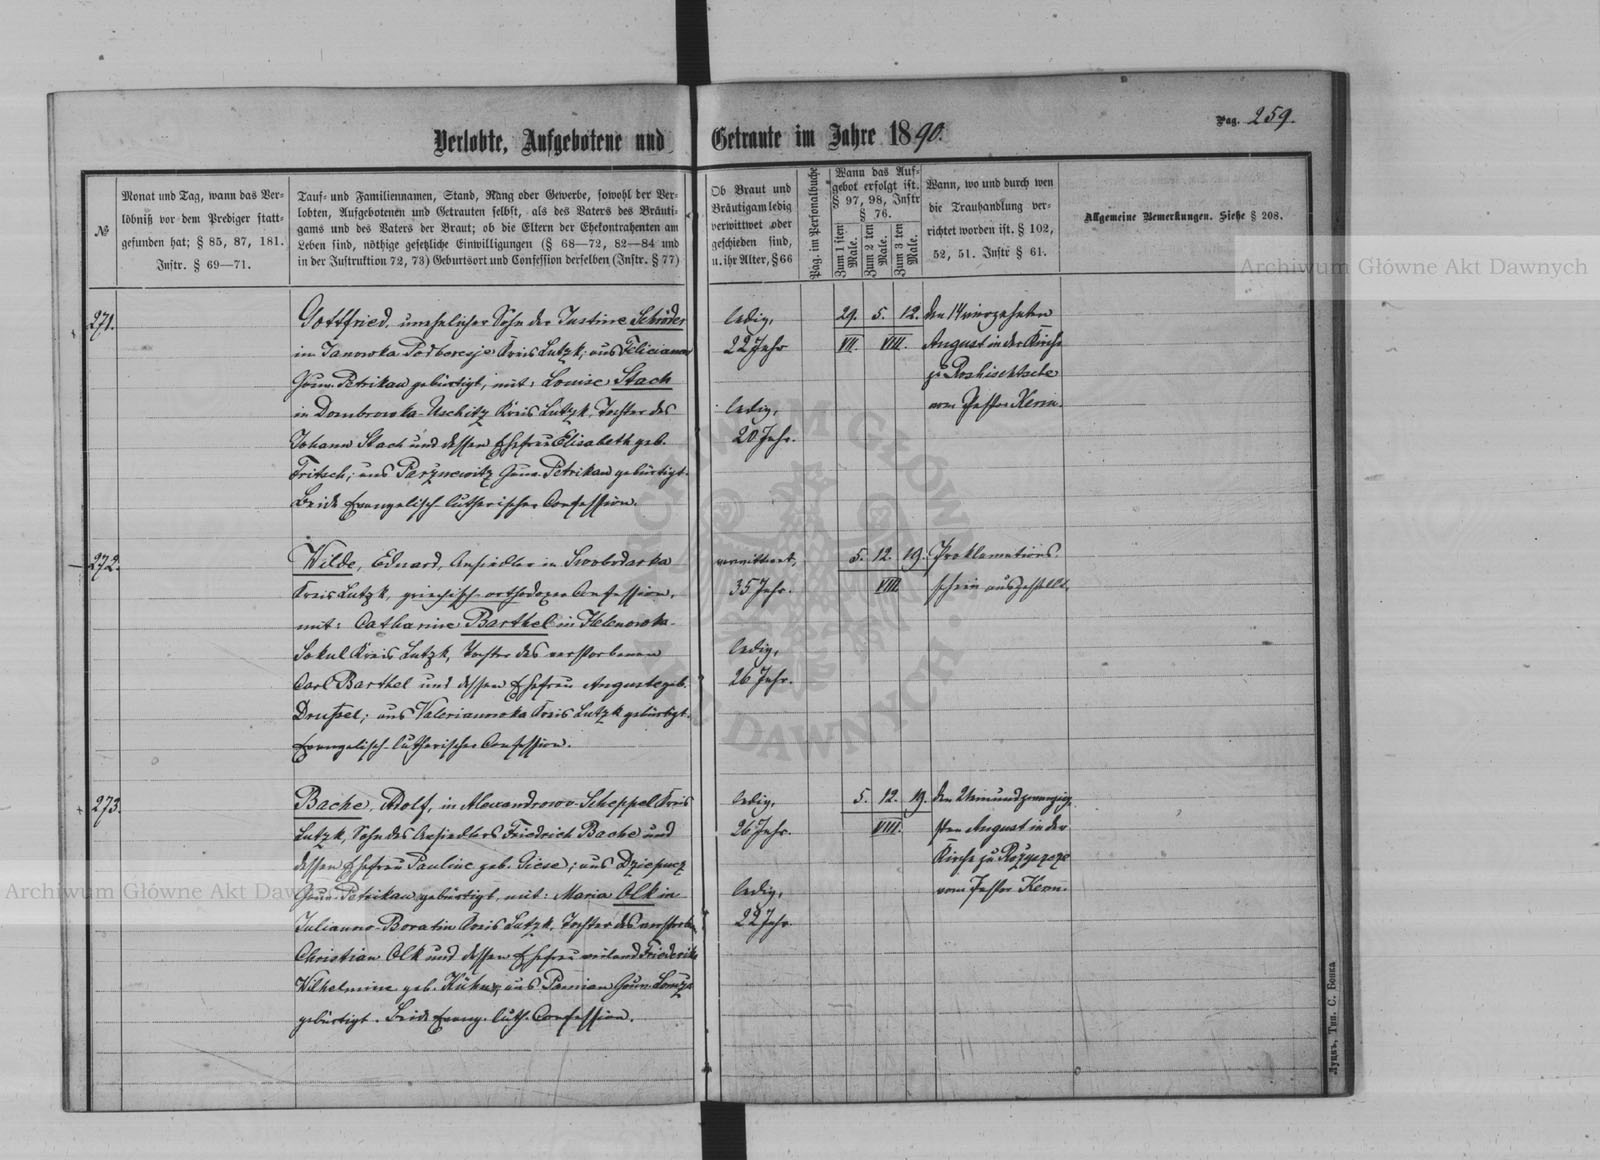 Pag. 259.
Verlobte, Aufgebotene und Getraute im Jahre 1890.
№
Monat und Tag, wann das Ver-
löbniß vor dem Prediger statt-
gefunden hat; § 85, 87, 181.
Instr. § 69—71.
Tauf- und Familiennamen, Stand, Rang oder Gewerbe, sowohl der Ver-
lobten, Aufgebotenen und Getrauten selbst, als des Vaters des Bräuti-
gams und des Vaters der Braut; ob die Eltern der Ehekontrahenten am
Leben sind, nöthige gesetzliche Einwilligungen (§ 68—72, 82—84 und
in der Instruktion 72, 73) Geburtsort und Confession derselben (Instr. § 77)
Ob Braut und
Bräutigam ledig
verwittwet oder
geschieden sind,
u. ihr Alter, § 66
Pag. im Personalbuche
Wann das Auf-
gebot erfolgt ist.
§ 97, 98, Instr
§ 76.
Zum 1 sten Male.
Zum 2 ten Male.
Zum 3 ten Male.
Wann, wo und durch wen
die Trauhandlung ver-
richtet worden ist. § 102,
52, 51. Instr § 61.
Allgemeine Bemerkungen. Siehe § 208.
271.
Gottfried, unehelicher Sohn der Justine Schröder
in Janowka Podberesje Kreis Lutzk; aus Felicianow
Gouv. Petrikau gebürtigt, mit: Louise Stach
in Dombrowka-Uschitz Kreis Lutzk, Tochter des
Johann Stach und dessen Ehefrau Elisabeth geb.
Fritsch; aus Parznewitz Gouv. Petrikau gebürtigt.
Beide Evangelisch-lutherischer Confession.
ledig,
22 Jahr
ledig,
20 Jahr.
29. 5. 12.
VII. VIII.
den 14 vierzehnten
August in der Kirche
zu Roshischtsche
vom Pastor Kerm.
272.
Wilde, Eduard, Ansiedler in Swobodarka
Kreis Lutzk, griechisch-orthodoxer Confession,
mit: Catharine Barthel in Helenowka-
Sokul Kreis Lutzk, Tochter des verstorbenen
Carl Barthel und dessen Ehefrau Auguste geb.
Drussel; aus Valerianowka Kreis Lutzk gebürtigt.
Evangelisch-lutherischer Confession.
verwittwet,
35 Jahr.
ledig,
26 Jahr.
5. 12. 19.
VIII.
Proklamations-
schein ausgestellt.
273.
Bache, Adolf, in Alexandrowo-Scheppel Kreis
Lutzk, Sohn des Ansiedlers Friedrich Bache und
dessen Ehefrau Pauline geb. Giese; aus
Gouv. Petrikau gebürtigt, mit: Maria Olk in
Julianno-Boratin Kreis Lutzk, Tochter des
Christian Olk und dessen Ehefrau weiland Friederike
Wilhelmine geb. aus Gouv. Lomza
gebürtigt. Beide Evang. luth. Confession.
ledig,
26 Jahr.
ledig,
22 Jahr.
5. 12. 19.
VIII.
den
sten August in der
Kirche zu Rożyszcze
vom Pastor Kerm.
Луцкъ, Тип. С. Бонка
Archiwum Główne Akt Dawnych
Archiwum Główne Akt Dawnych